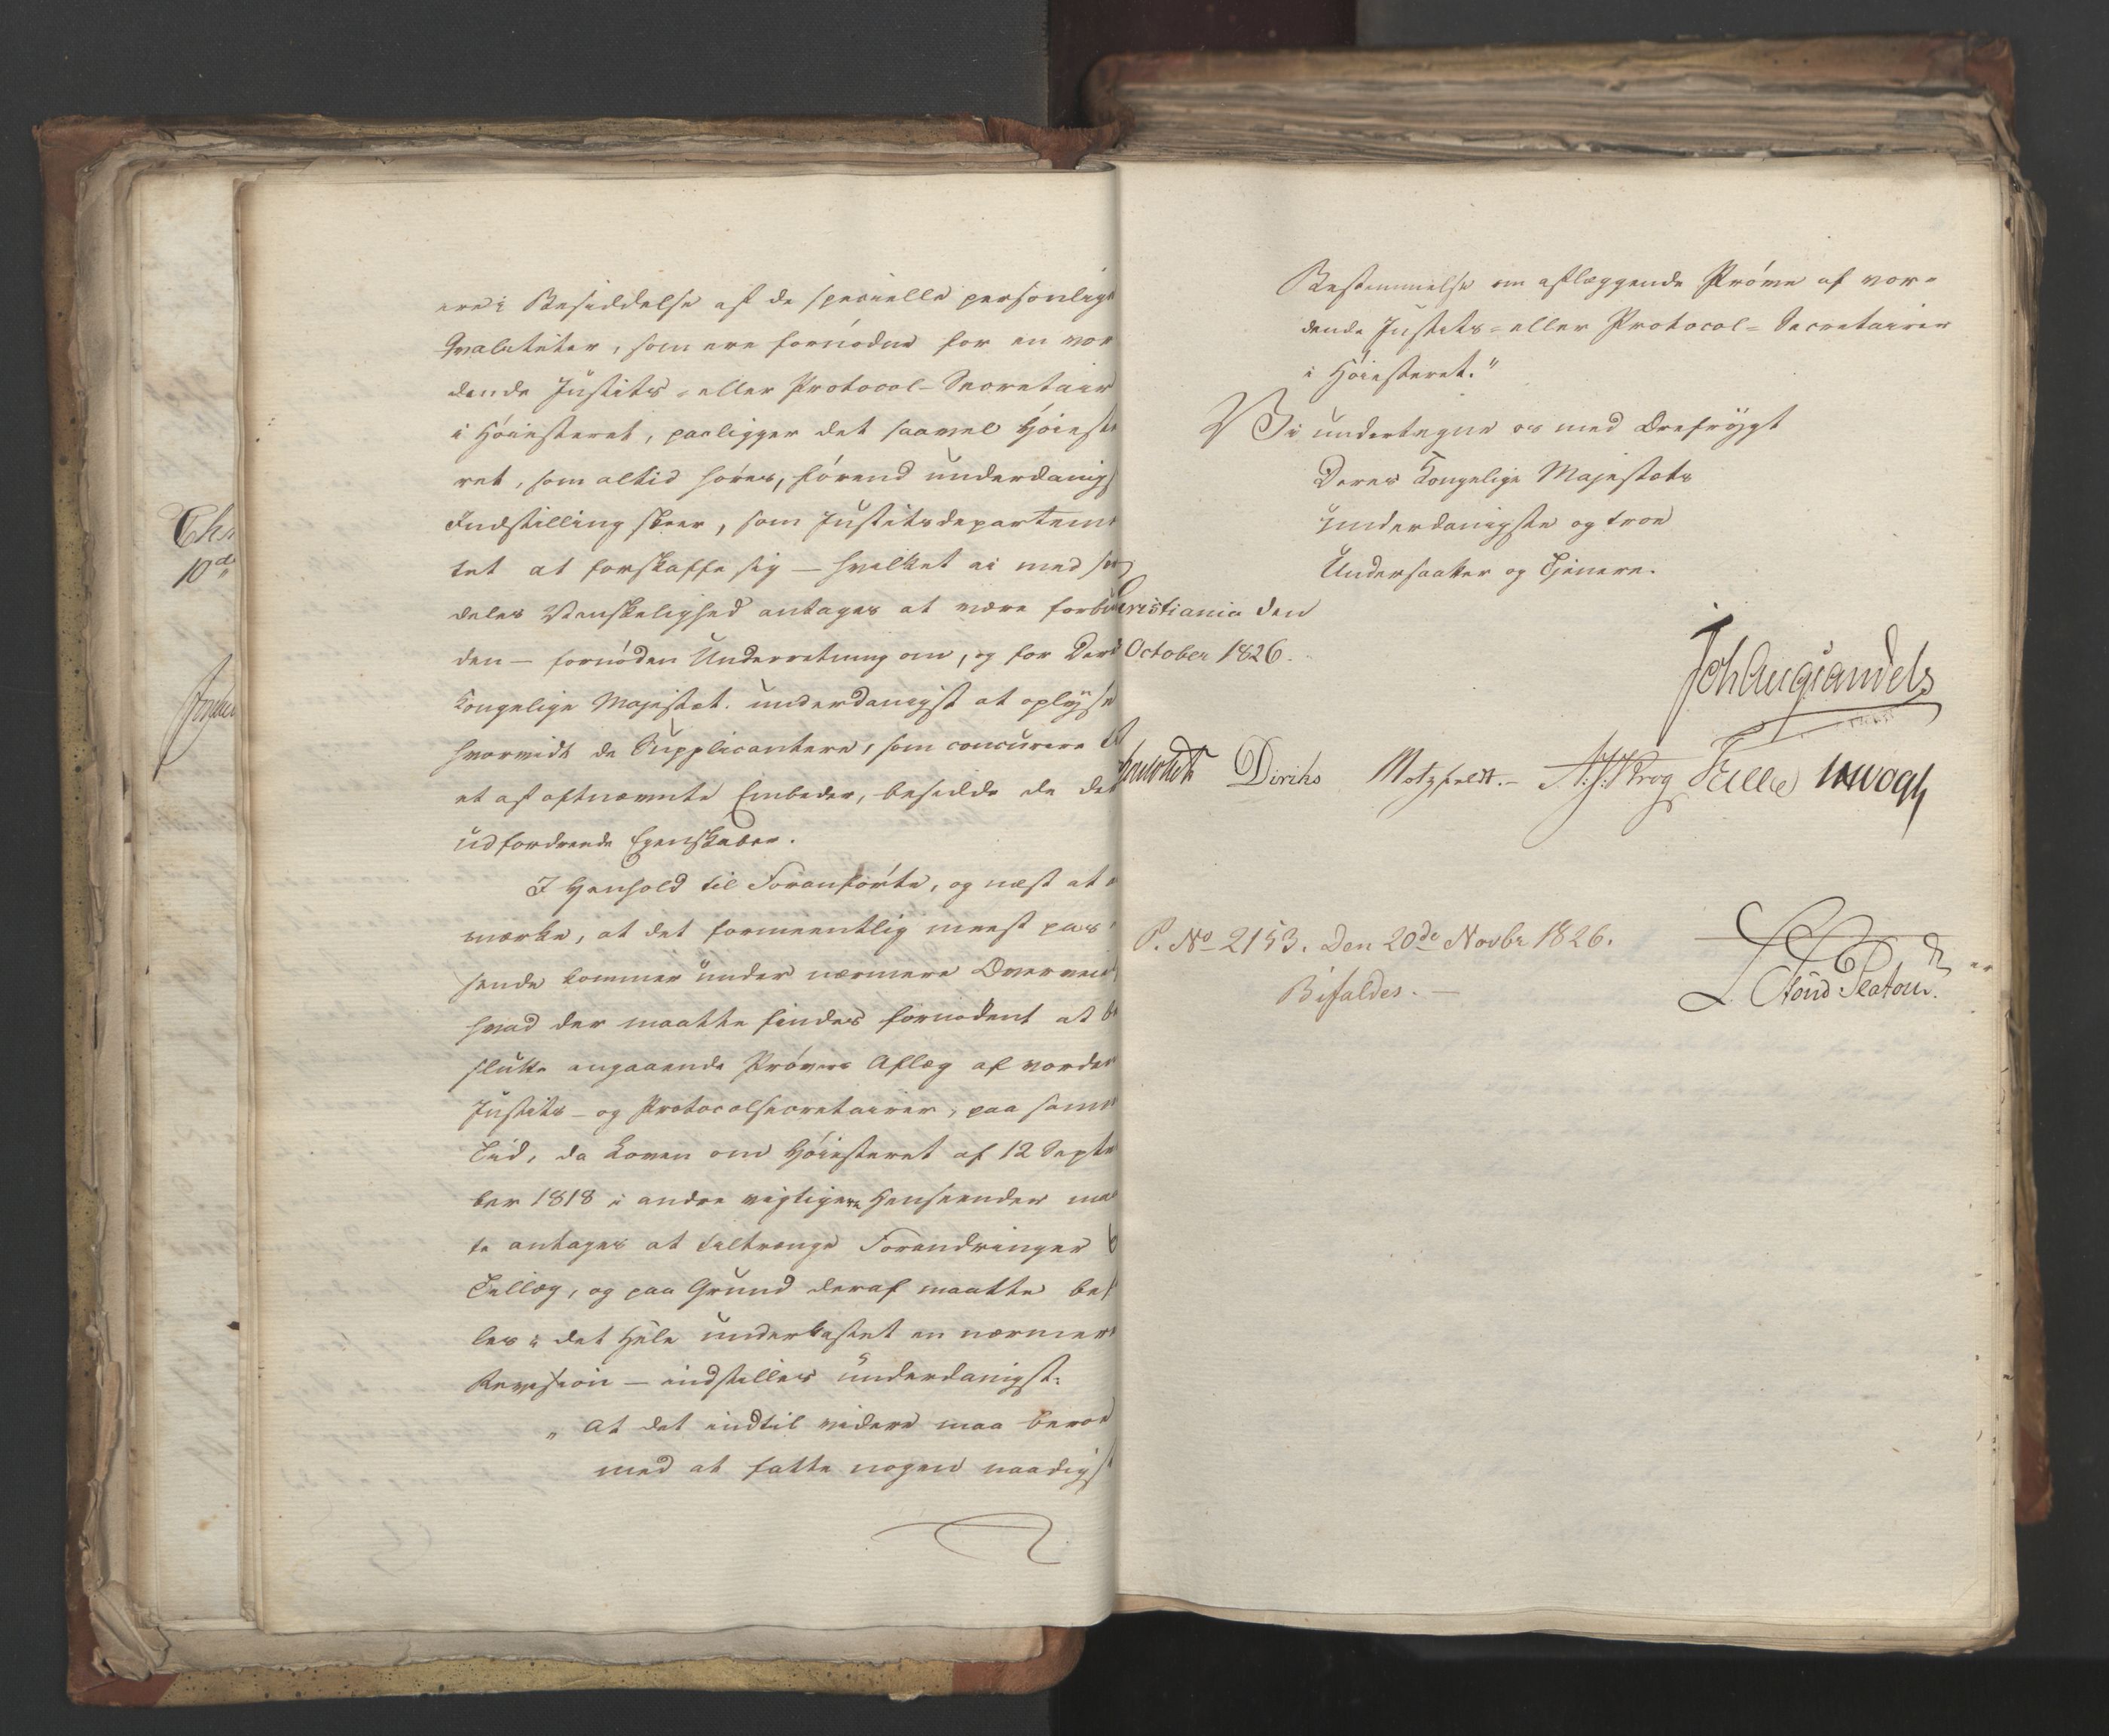 ere i Besiddelse af de specielle personlige
Qvaliteter, som ere fornødne for en vor
dende Justits- eller Protocol-Secretair
i Høiesteret, paaligger det saavel Høieste
ret, som altid høres, førend underdanigst
Indstilling skeer, som Justitsdepartemen
tet at forskaffe sig — hvilket ei med sær
deles Vanskelighed antages at være forbun
den — fornøden Underretning om, og for Deres
Kongelige Majestæt underdanigst at oplyse
hvorvidt de Supplicantere, som concurere til
et af oftnævnte Embeder, besidde de der
udfordrende Egenskaber.
I Henhold til Foranførte, og næst at be
mærke, at det formeentlig meest pas
sende kommer under nærmere Overveielse
hvad der maatte findes fornødent at be
slutte angaaende Prøvers Aflæg af vordende
Justits- og Protocolsecretairer, paa samme
Tid, da Loven om Høiesteret af 12 Septem
ber 1818 i andre vigtigere Henseender maa
te antages at tiltrænge Forandringer og
Tillæg, og paa Grund deraf maatte befin
des i det Hele underkastet en nærmere
Revision — indstilles underdanigst:
„At det indtil videre maa beroe
med at fatte nogen naadigst
Chr
10de
Bestemmelse om aflæggende Prøve af vor-
dende Justits- eller Protocol-Secretairer
i Høiesteret."
Vi undertegne os med Ærefrygt
Deres Kongelige Majestæts
underdanigste og troe
Undersaatter og Tjenere.
Christiania den
October 1826.
Joh Aug Sandels
Diriks Motzfeldt.- Krog
P. No 2153. Den 20de Novbr 1826.
Bifaldes. —
C. Stoud Platou.